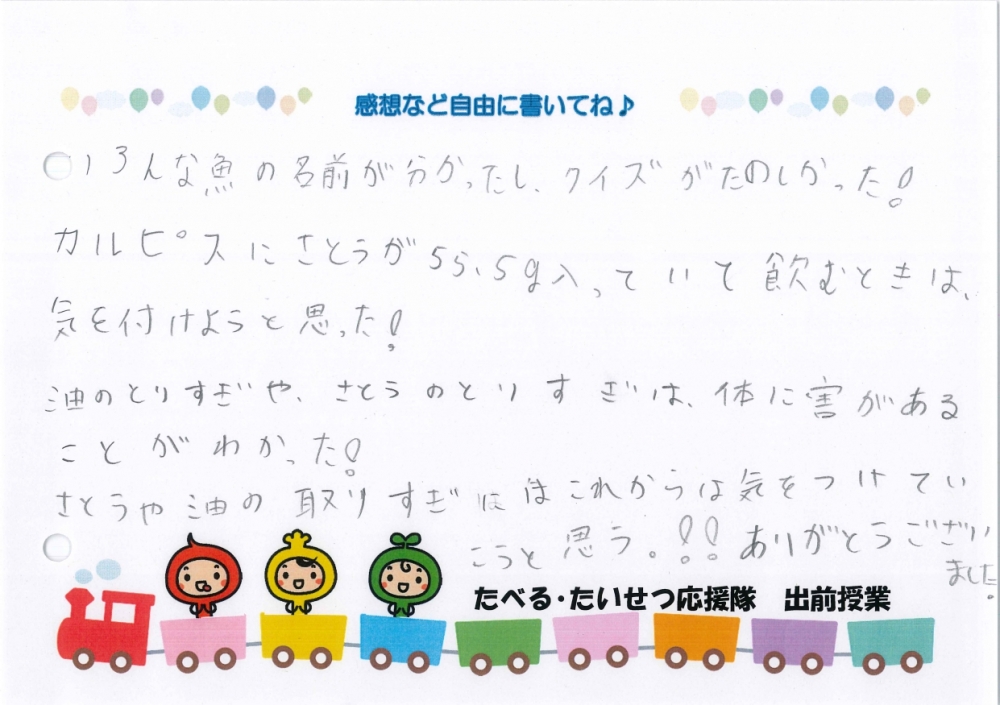 感想など自由に書いてね♪
いろんな魚の名前が分かったし、クイズがたのしかった!
カルピスにさとうが55.5g入っていて飲むときは、
気を付けようと思った!
油のとりすぎや、さとうのとりすぎは、体に害がある
ことがわかった!
さとうや油の取りすぎにはこれからは気をつけてい
こうと思う。!!ありがとうござい
ました。
たべる・たいせつ応援隊 出前授業